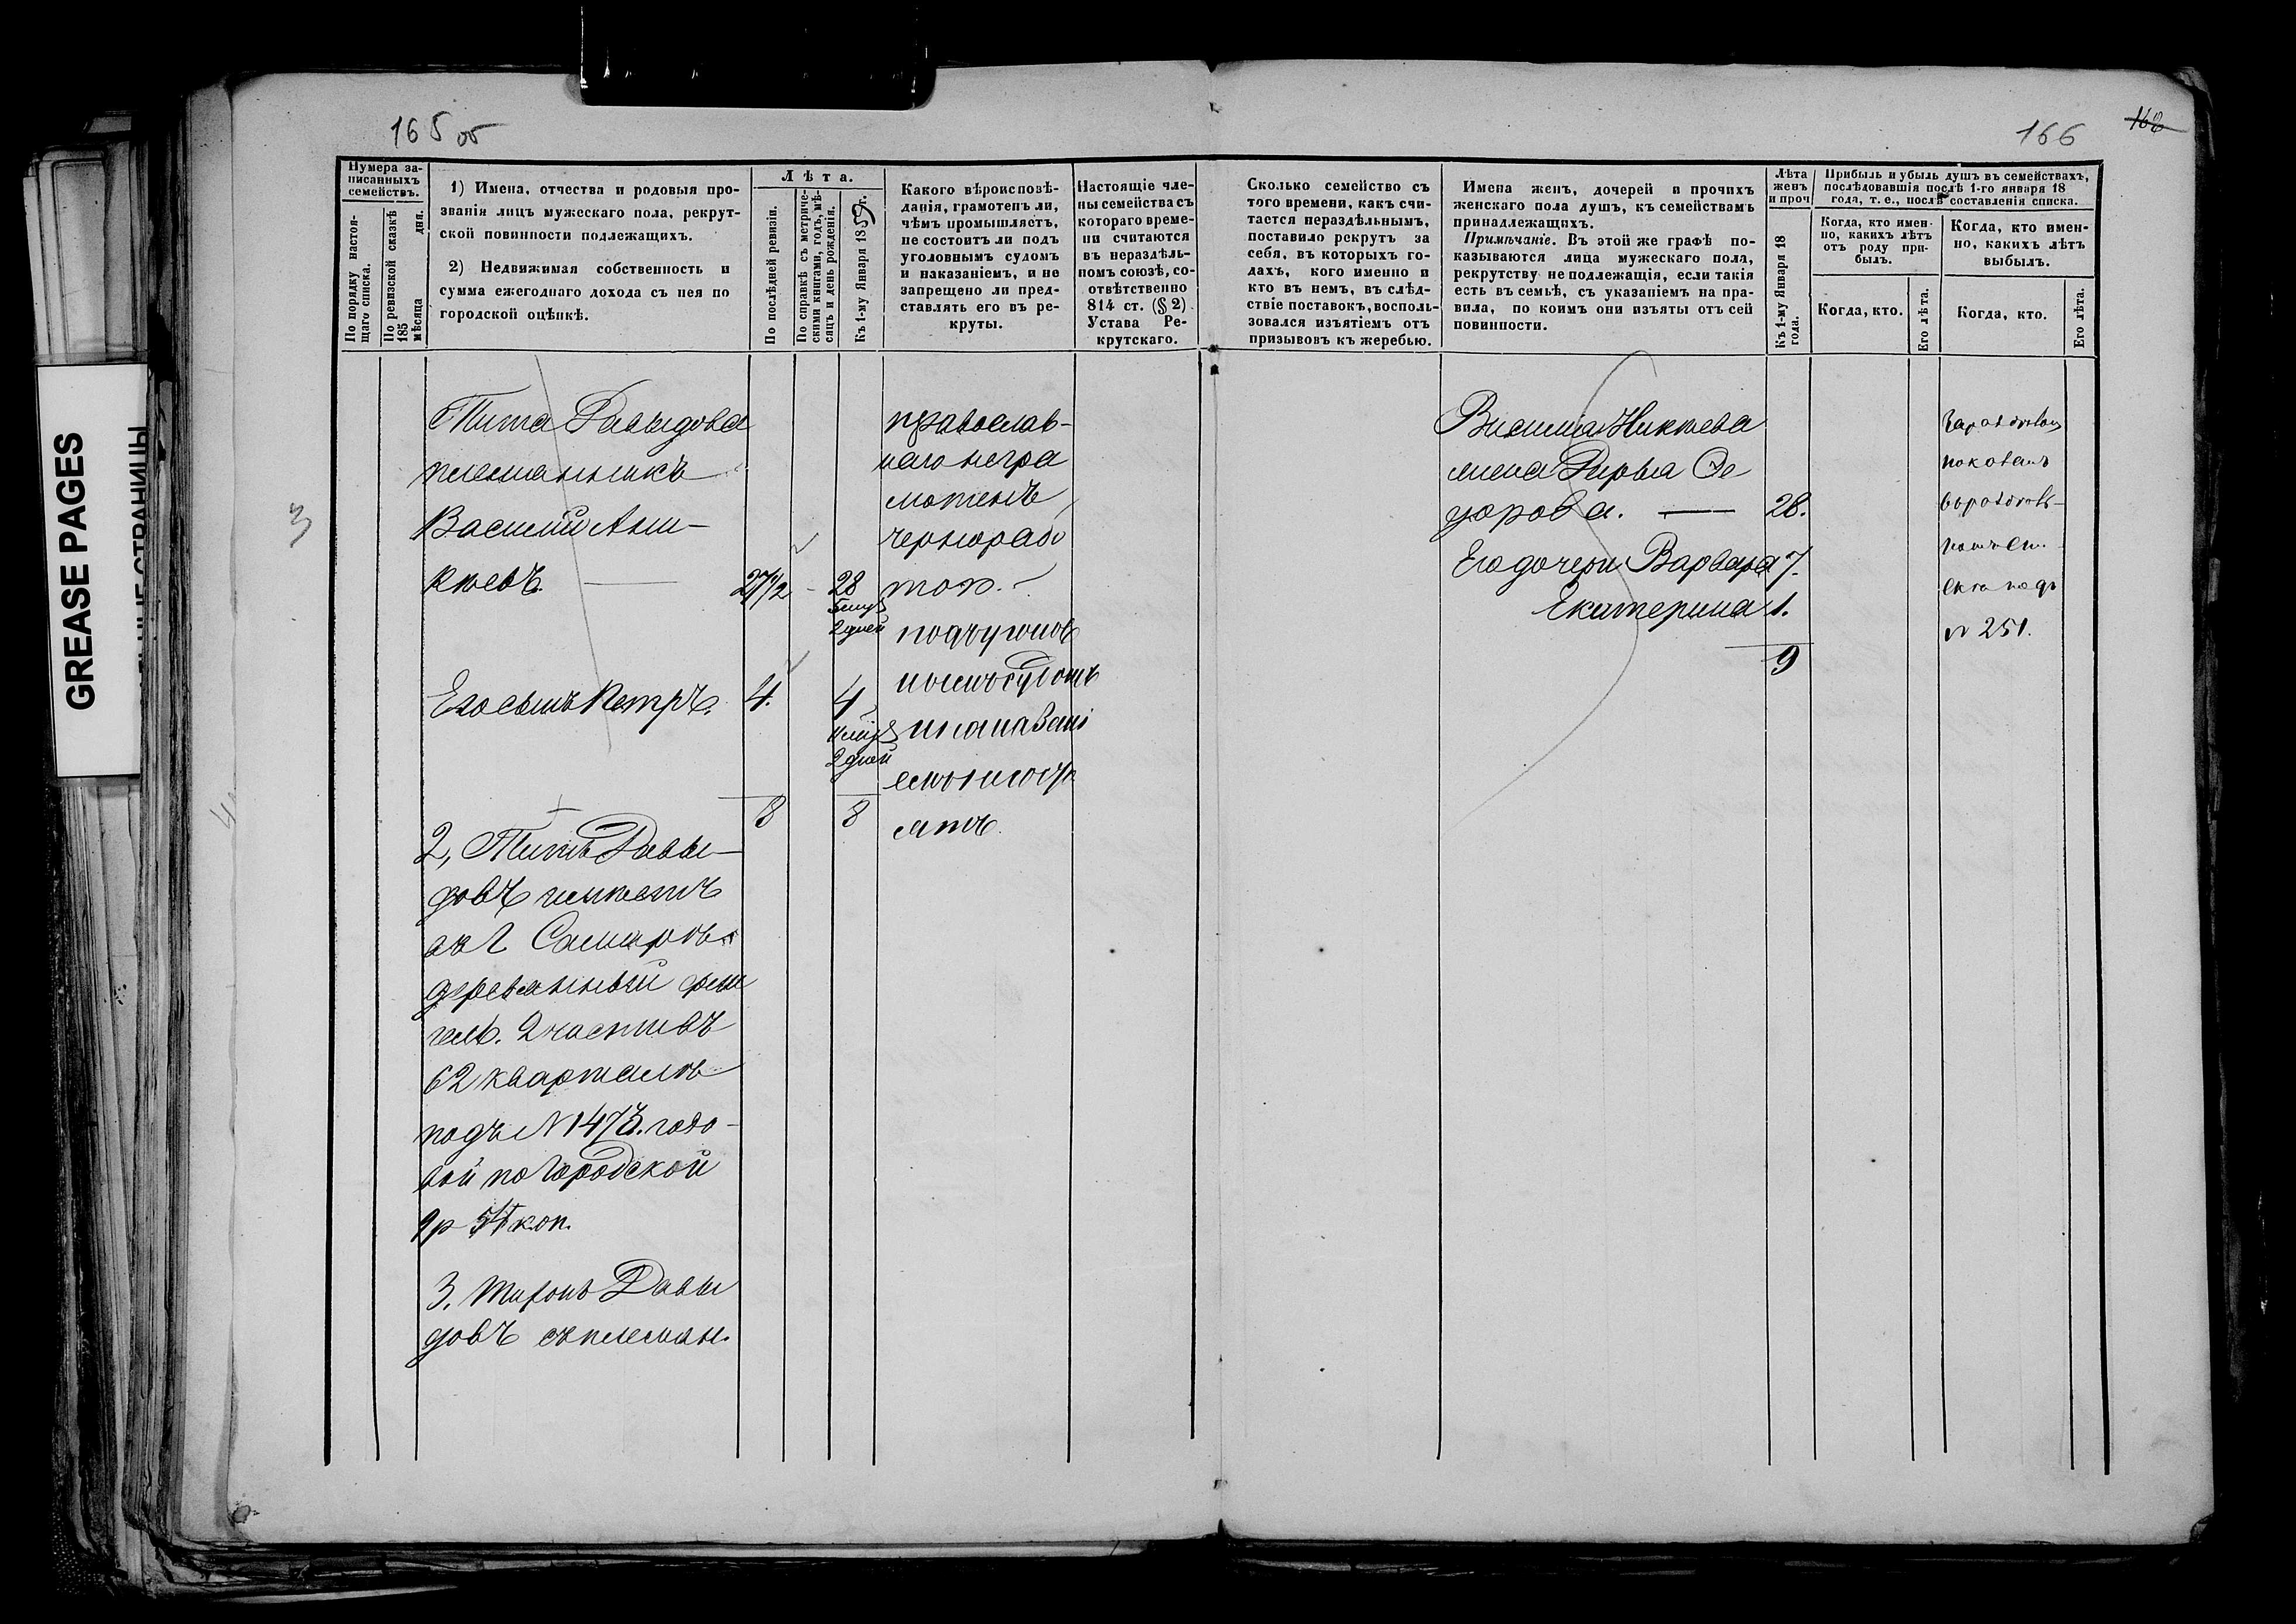 165 об
166
168
GREASE PAGES
Нумера за-
писанныхъ
семействъ.
По порядку настоя-
щаго списка.
По ревизской сказкѣ
185
мѣсяца дня.
1) Имена, отчества и родовыя про-
званія лицъ мужескаго пола, рекрут-
ской повинности подлежащихъ.
2) Недвижимая собственность и
сумма ежегоднаго дохода съ нея по
городской оцѣнкѣ.
Лѣта.
По послѣдней ревизіи.
По справкѣ съ метриче-
скими книгами, годъ, мѣ-
сяцъ и день рожденія.
Къ 1-му Января 1859 г.
Какого вѣроисповѣ-
данія, грамотенъ ли,
чѣмъ промышляетъ,
не состоитъ ли подъ
уголовнымъ судомъ
и наказаніемъ, и не
запрещено ли пред-
ставлять его въ ре-
круты.
Настоящіе чле-
ны семейства съ
котораго време-
ни считаются
въ нераздѣль-
номъ союзѣ, со-
отвѣтственно
814 ст. (§ 2)
Устава Ре-
крутскаго.
Сколько семейство съ
того времени, какъ счи-
тается нераздѣльнымъ,
поставило рекрутъ за
себя, въ которыхъ го-
дахъ, кого именно и
кто въ немъ, въ слѣд-
ствіе поставокъ, восполь-
зовался изъятіемъ отъ
призывовъ къ жеребью.
Имена женъ, дочерей и прочихъ
женскаго пола душъ, къ семействамъ
принадлежащихъ.
Примѣчаніе. Въ этой же графѣ по-
казываются лица мужескаго пола,
рекрутству не подлежащія, если такія
есть въ семьѣ, съ указаніемъ на пра-
вила, по коимъ они изъяты отъ сей
повинности.
Лѣта
женъ
и проч
Къ 1-му Января 18
года.
Прибыль и убыль душъ въ семействахъ,
послѣдовавшія послѣ 1-го января 18
года, т. е., послѣ составленія списка.
Когда, кто имен-
но, какихъ лѣтъ
отъ роду при-
былъ.
Когда, кто.
Его лѣта.
Когда, кто имен-
но, какихъ лѣтъ
выбылъ.
Когда, кто.
Его лѣта.
3
Тита Давыдова
племянникъ
Василій Ани-
кѣевъ. 27 1/2 - 28
2 дней
Его сынъ Петръ. 4. 4
2 дней
8 8
православ-
наго негра
мотенъ
чернорабо
топ.
подъ уголов
нымъ судомъ
и наказані
емъ не состо
итъ.
2, Титъ Давы-
довъ имѣетъ
въ г Самарѣ
деревянный фли
гель. 2 части въ
62 кварталѣ
подъ N 1473. годо-
вой по городской
9 р 54 коп.
3. Миронъ Давы
довъ съ племян.
Василья Аникѣева
жена Дарья Ѳе
дорова. — 28.
Его дочери Варвара 7.
Екатерина 1.
9
подъ
N 251.